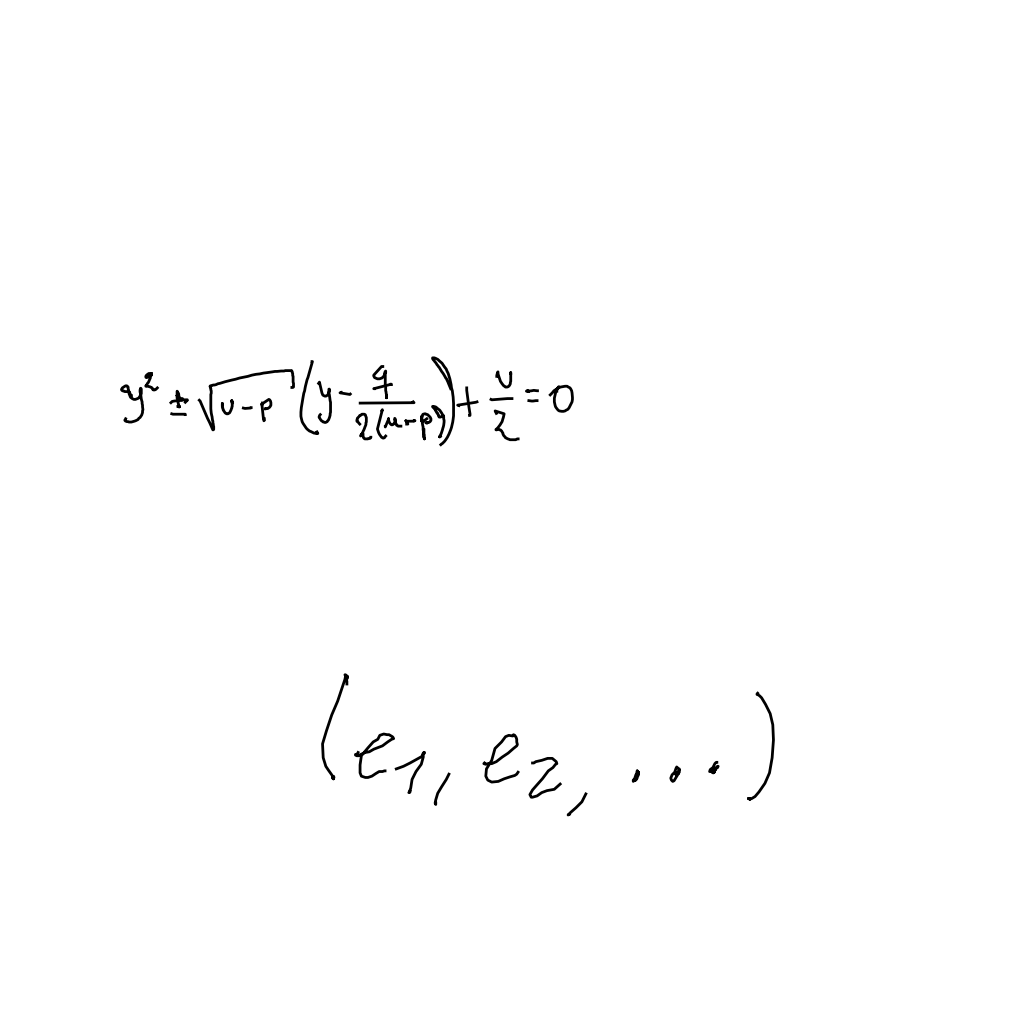 y² ± √(u-p) (y - q/(2(u-p))) + u/2 = 0
(e₁, e₂, ...)